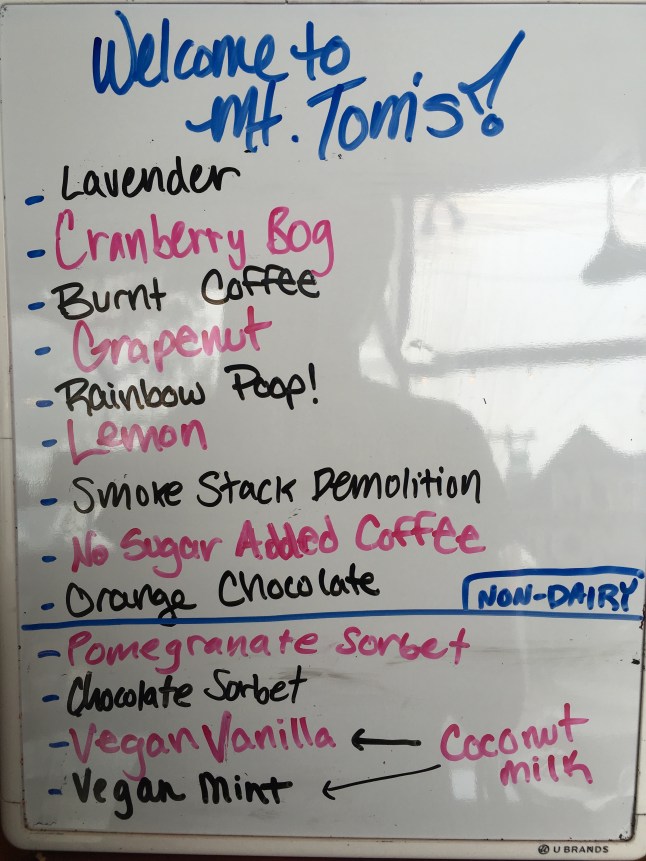 Welcome to
Mt. Tom's!
- Lavender
- Cranberry Bog
- Burnt Coffee
- Grapenut
- Rainbow Poop!
- Lemon
- Smoke Stack Demolition
- No Sugar Added Coffee
- Orange Chocolate
NON-DAIRY
- Pomegranate Sorbet
- Chocolate Sorbet
- Vegan Vanilla ← Coconut
milk
- Vegan Mint ←
U BRANDS